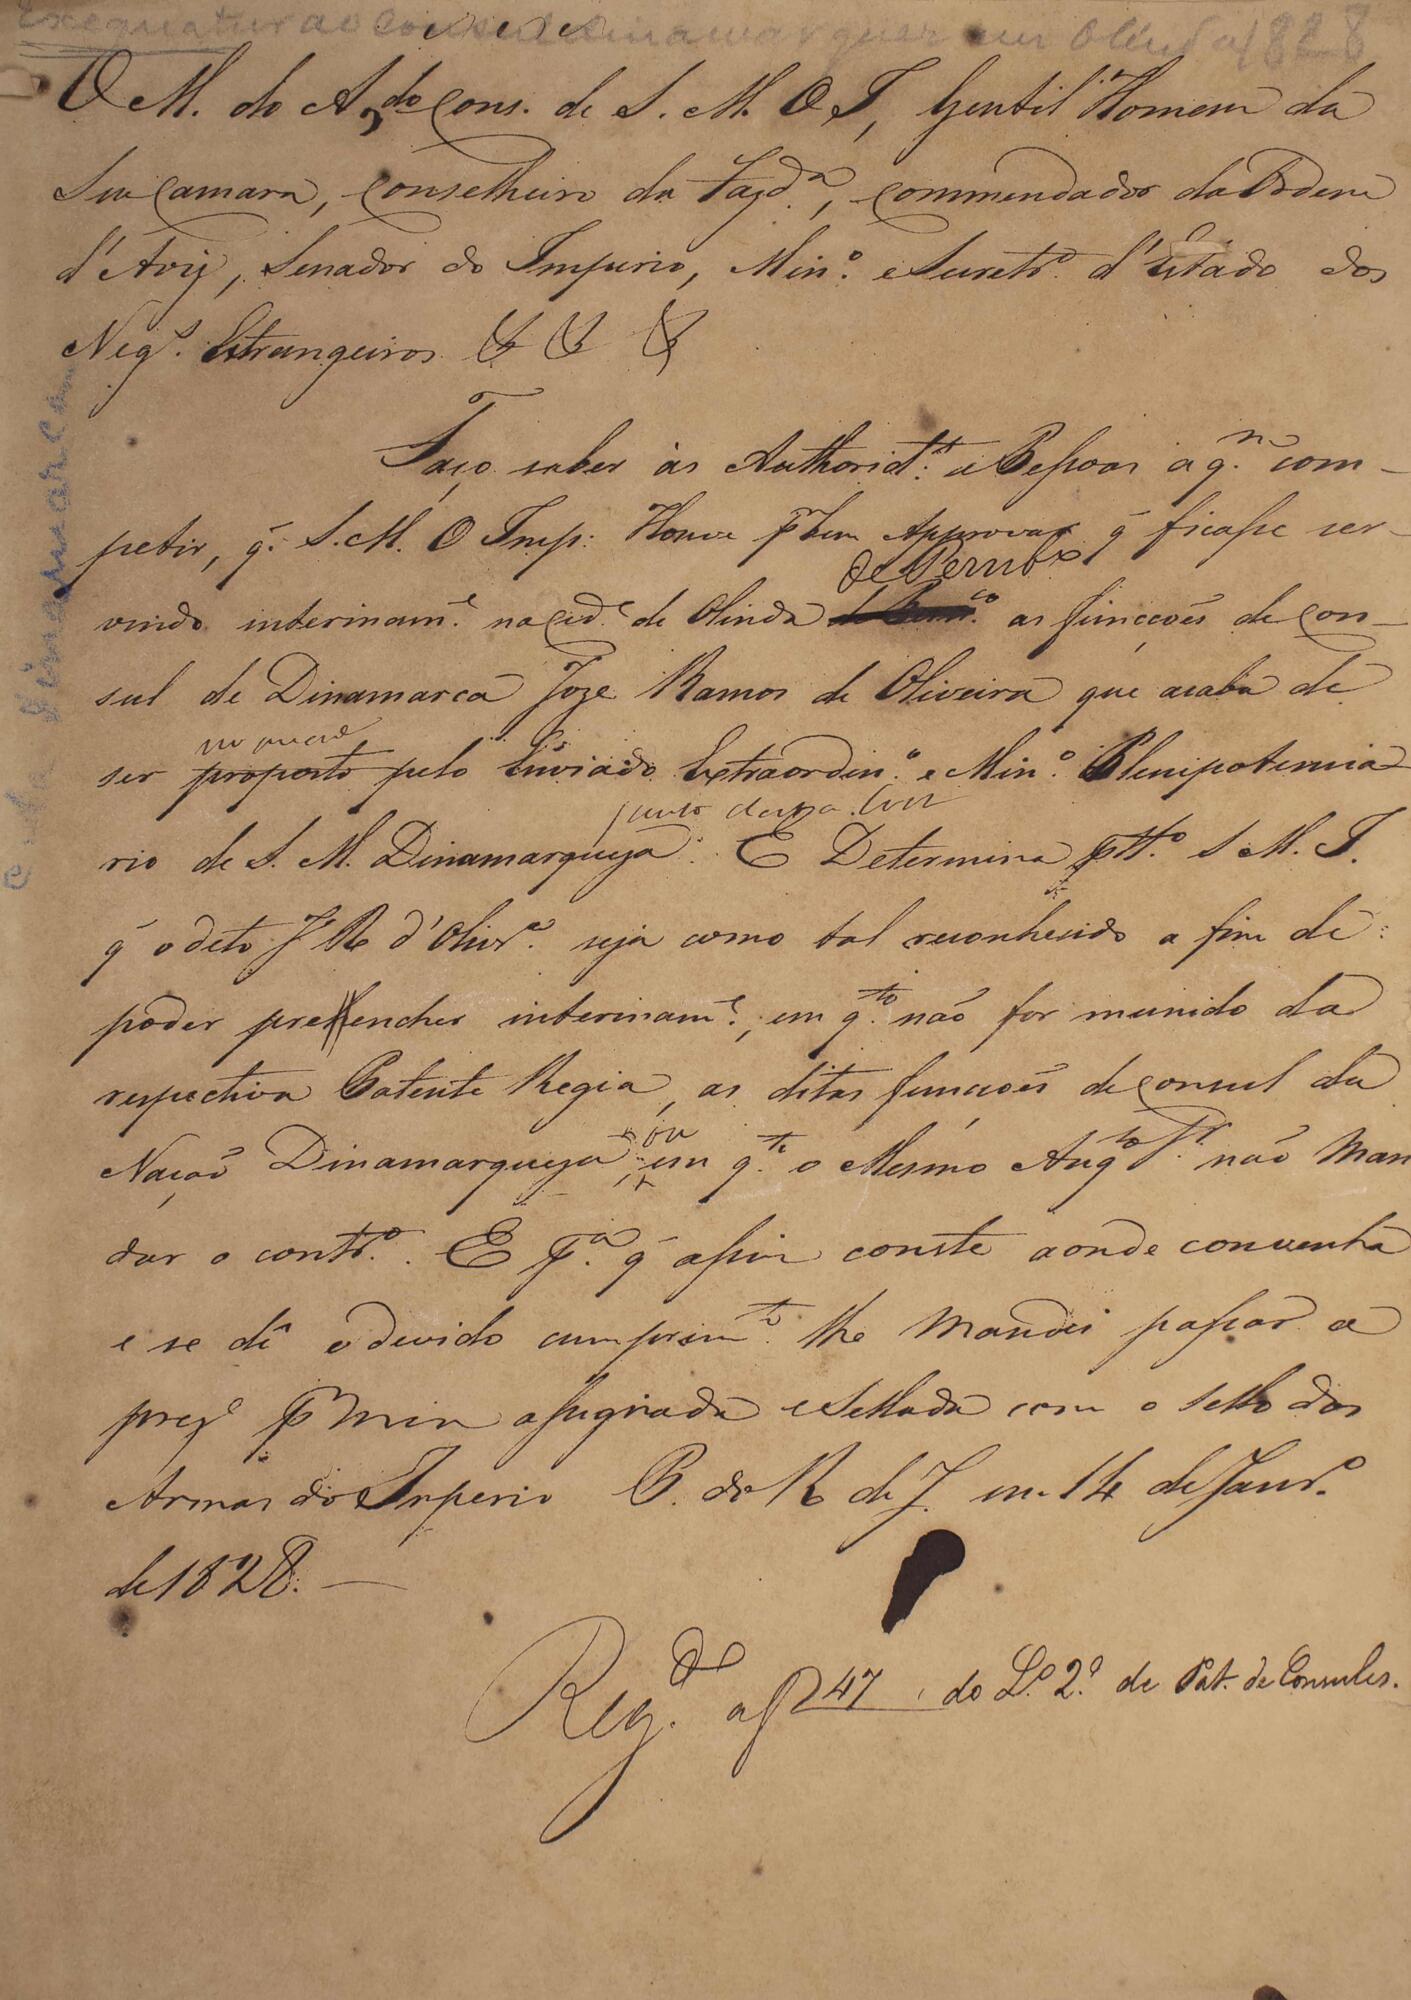 Exequatur ao Consul Dinamarquez em Olinda 1828
O M. do A, do Cons. de S. M. O I, Gentil Homem da
Sua Camara, Conselheiro da Fazdª, Commendador da Ordem
d'Aviz, Senador do Imperio, Minº e Secretrº d'Estado dos
Negs. Estrangeiros & & &
Faço saber às Authoridtes e Pessoas a qm com-
petir, q̃ S. M. O Imp: Houve pr bem Approvar q̃ ficasse ser-
de Pernbco
vindo interiname na Cide de Olinda as funcções de Con-
sul de Dinamarca Joze Ramos de Oliveira que acaba de
nomeado
ser proposto pelo Enviado Extraordinº e Minº Plenipotencia
junto desta Corte
rio de S. M. Dinamarqueza. E Determina pttº S M. I.
q̃ o dito J R d'Olivrª seja como tal reconhecido a fim de
poder preencher interiname, em qto não for munido da
respectiva Patente Regia, as ditas funcções de Consul da
ou
Nação Dinamarqueza, em qto o Mesmo Augto Sr não Man
dar o contrº. E pª q̃ assim conste aonde convenha
e se dê o devido cumprimto lhe Mandei passar a
preze pr mim assignada e Sellada com o Sello das
Armas do Imperio P. do R de J. em 14 de Janrº
de 1828.
Regda a f 47 do Lº 2º de Pat. de Consules.